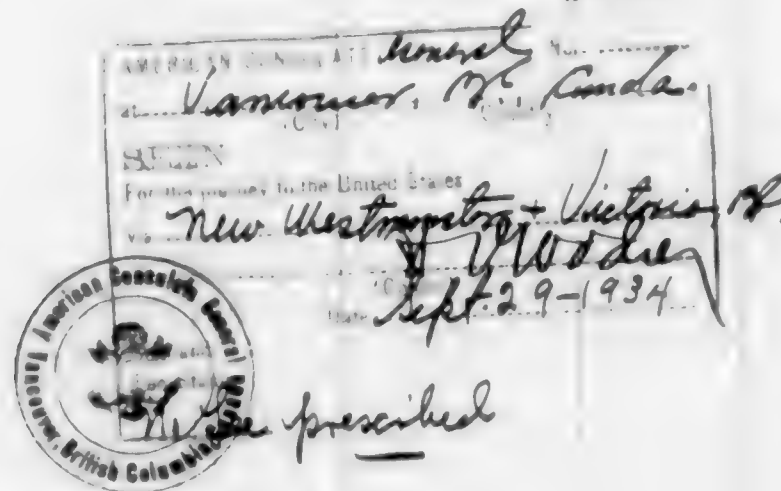 AMERICAN CONSULATE General No. ..........
at Vancouver, BC, Canada.
(City)
SEEN
For the journey to the United States
via New Westminster + Victoria BC
Date Sept. 29-1934
American Consulate General
Vancouver, British Columbia, Canada
prescribed